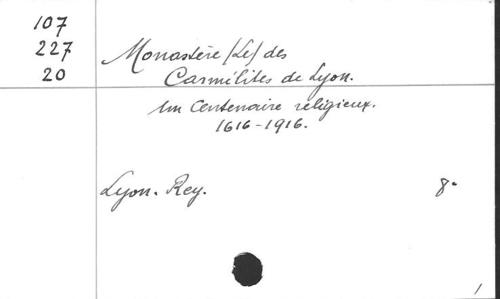 107
227
20
Monastère (Le) des
Carmélites de Lyon.
Un Centenaire religieux.
1616-1916.
Lyon. Rey. 8°
1